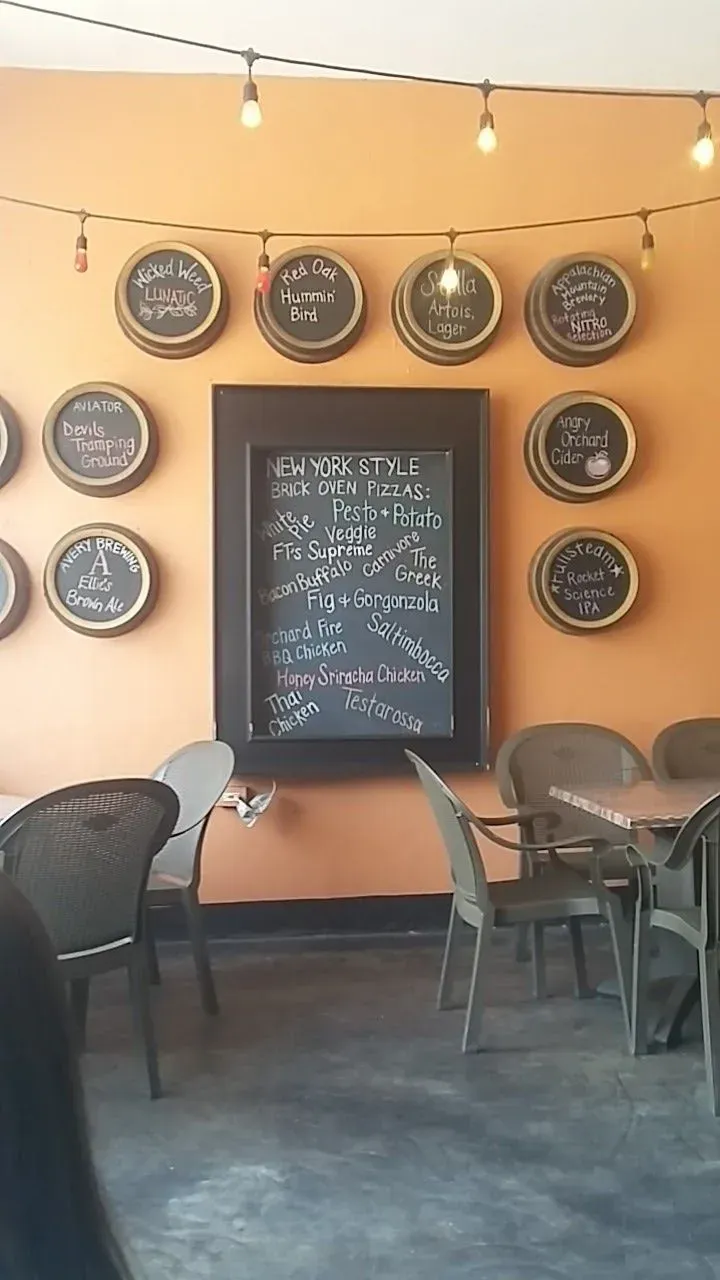 Wicked Weed
LUNATIC
Red Oak
Hummin'
Bird
Stella
Artois,
Lager
Appalachian
Mountain
Brewery
Rotating
NITRO
Selection
AVIATOR
Devils
Tramping
Ground
Angry
Orchard
Cider
AVERY BREWING
A
Ellie's
Brown Ale
Fullsteam
Rocket
Science
IPA
NEW YORK STYLE
BRICK OVEN PIZZAS:
White
Pie
Pesto + Potato
Veggie
FT's Supreme
Carnivore
The
Greek
Bacon Buffalo
Fig + Gorgonzola
Orchard Fire
BBQ Chicken
Saltimbocca
Honey Sriracha Chicken
Thai
Chicken
Testarossa